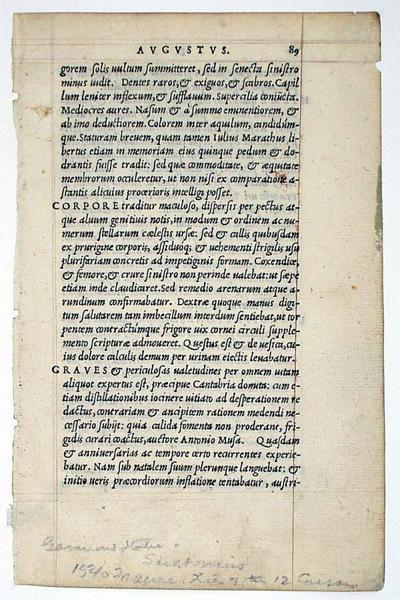 AVGVSTVS. 89
gorem solis uultum summitteret, sed in senecta sinistro
minus uidit. Dentes raros, & exiguos, & scabros. Capil
lum leniter inflexum, & sufflauum. Supercilia coniuncta.
Mediocres aures. Nasum & à summo eminentiorem, &
ab imo deductiorem. Colorem inter aquilum, candidúm-
que. Staturam breuem, quam tamen Iulius Marathus li-
bertus etiam in memoriam eius quinque pedum & do-
drantis fuisse tradit: sed quæ commoditate, & æquitate
membrorum occuleretur, ut non nisi ex comparatione a-
stantis alicuius procerioris intelligi posset.
CORPORE traditur maculoso, dispersis per pectus at-
que aluum genitiuis notis, in modum & ordinem ac nu-
merum stellarum cælestis ursæ: sed & callis quibusdam
ex prurigine corporis, assiduóq; & uehementi strigilis usu
plurifariam concretis ad impetiginis formam. Coxendice,
& femore, & crure sinistro non perinde ualebat: ut sæpe
etiam inde claudicaret. Sed remedio arenarum atque a-
rundinum confirmabatur. Dextræ quoque manus digi-
tum salutarem tam imbecillum interdum sentiebat, ut tor
pentem contractúmque frigore uix cornei circuli supple-
mento scripturæ admoueret. Questus est & de uesica, cu-
ius dolore calculis demum per urinam eiectis leuabatur.
GRAVES & periculosas ualetudines per omnem uitam
aliquot expertus est, præcipue Cantabria domita: cum e-
tiam distillationibus iocinere uitiato ad desperationem re
dactus, contrariam & ancipitem rationem medendi ne-
cessario subijt: quia calida fomenta non proderane, fri-
gidis curari coactus, auctore Antonio Musa. Quasdam
& anniuersarias ac tempore certo recurrentes experie-
batur. Nam sub natalem suum plerunque languebat: &
initio ueris præcordiorum inflatione tentabatur, austri-
Suetonius
1540 Lives of the 12 Caesars